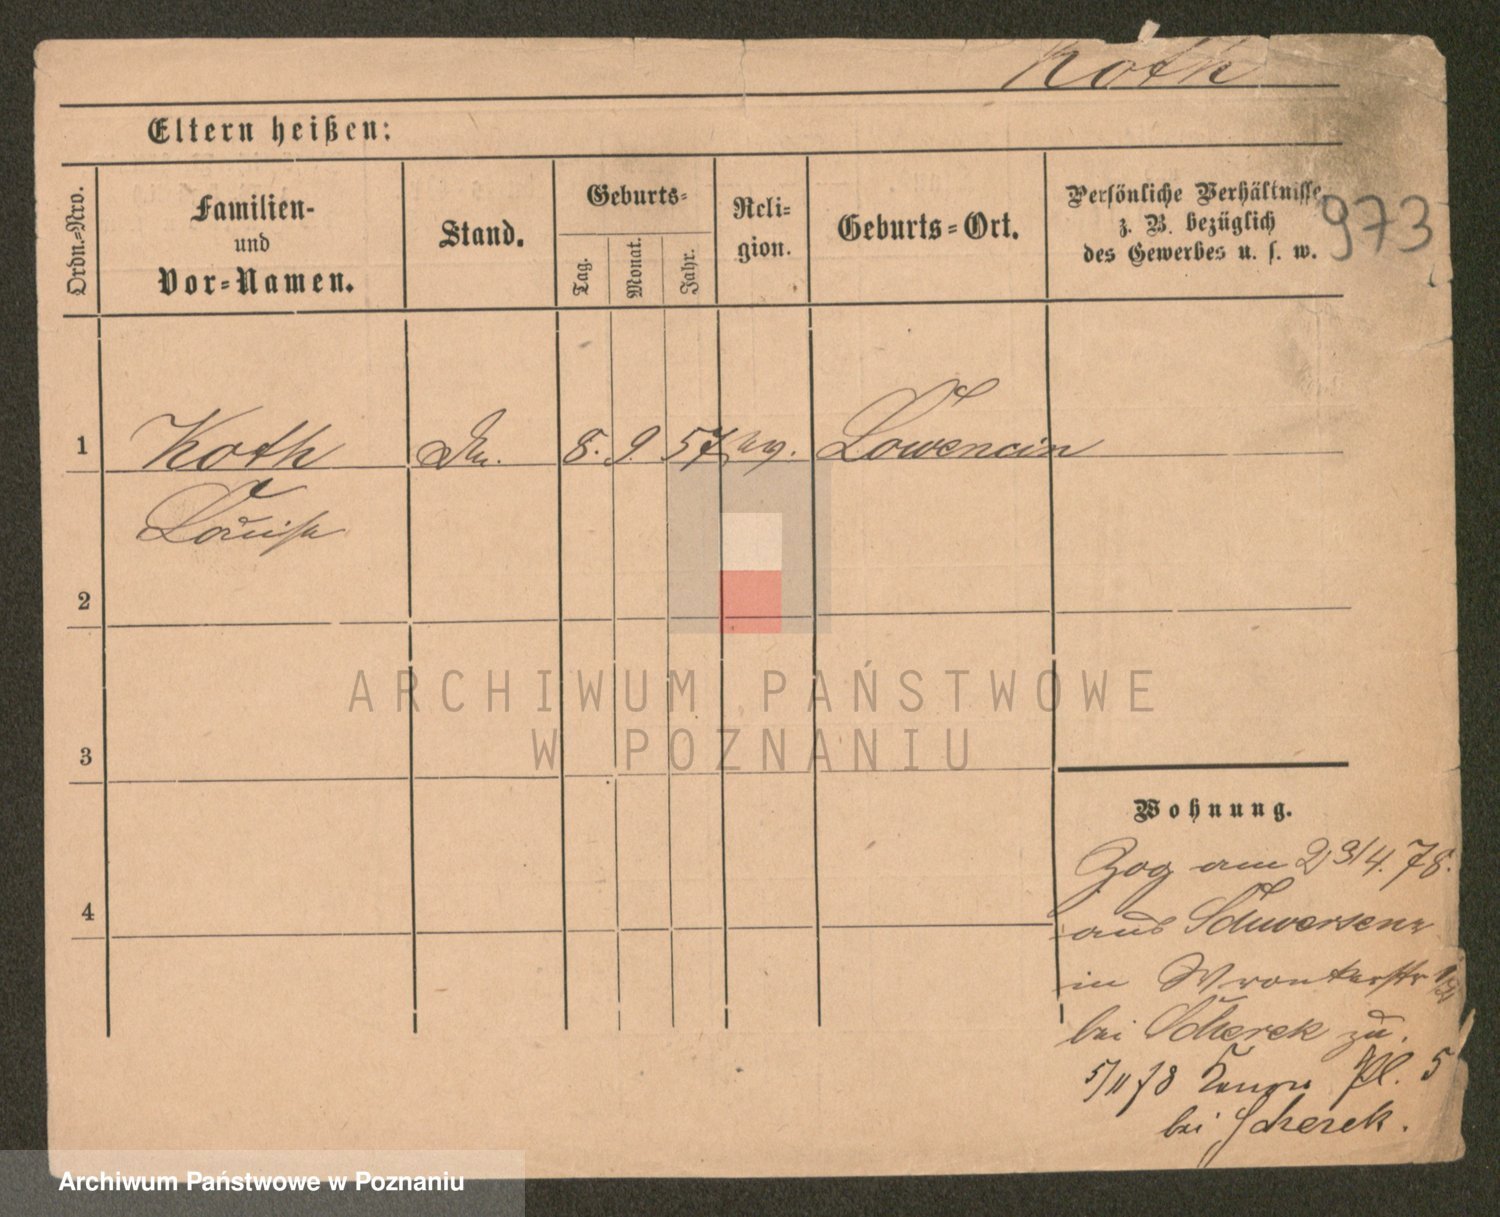 Koth
Eltern heißen:
Ordn.-Nro.
Familien-
und
Vor-Namen.
Stand.
Geburts-
Tag.
Monat.
Jahr.
Reli-
gion.
Geburts-Ort.
Persönliche Verhältnisse
z. B. bezüglich
des Gewerbes u. s. w.
973
1
Koth
8. 9. 57
Lowencin
Louise
2
3
4
ARCHIWUM PAŃSTWOWE
W POZNANIU
Wohnung.
Zog am 23/4. 78.
aus Schwersenz
in Wronkerstr
bei Scherek zu.
5/11 78 Pl. 5
bei Scherek.
Archiwum Państwowe w Poznaniu